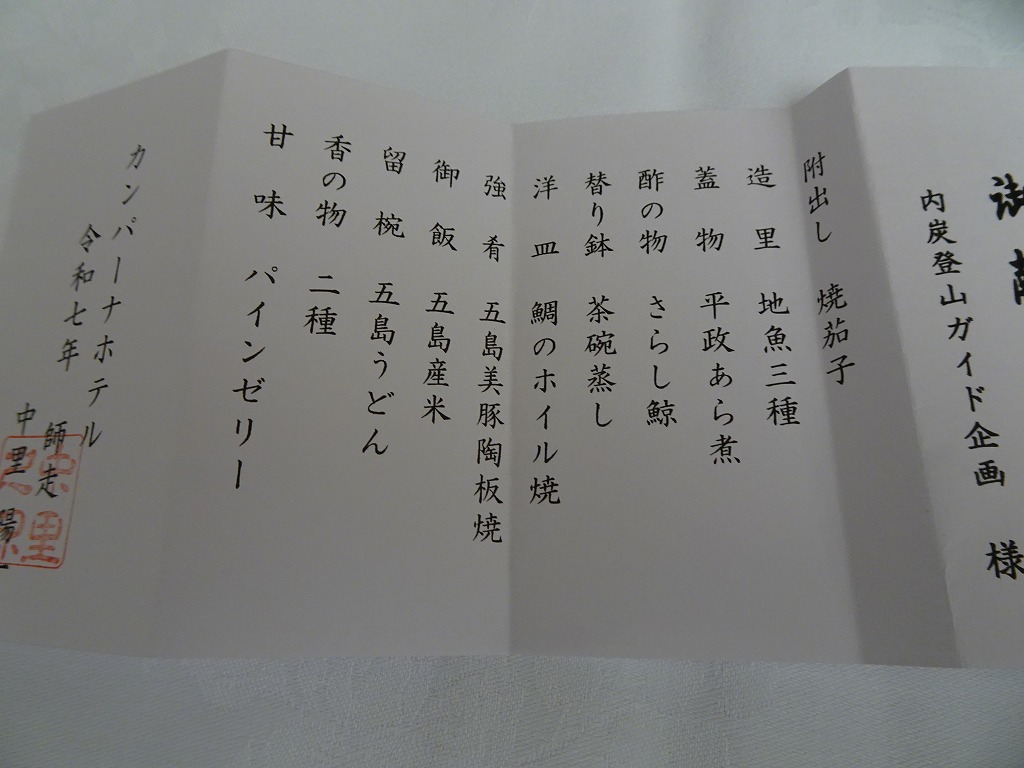 御献
内炭登山ガイド企画 様
附出し 焼茄子
造里 地魚三種
蓋物 平政あら煮
酢の物 さらし鯨
替り鉢 茶碗蒸し
洋皿 鯛のホイル焼
強肴 五島美豚陶板焼
御飯 五島産米
留椀 五島うどん
香の物 二種
甘味 パインゼリー
カンパーナホテル
令和七年
師走
中里 陽